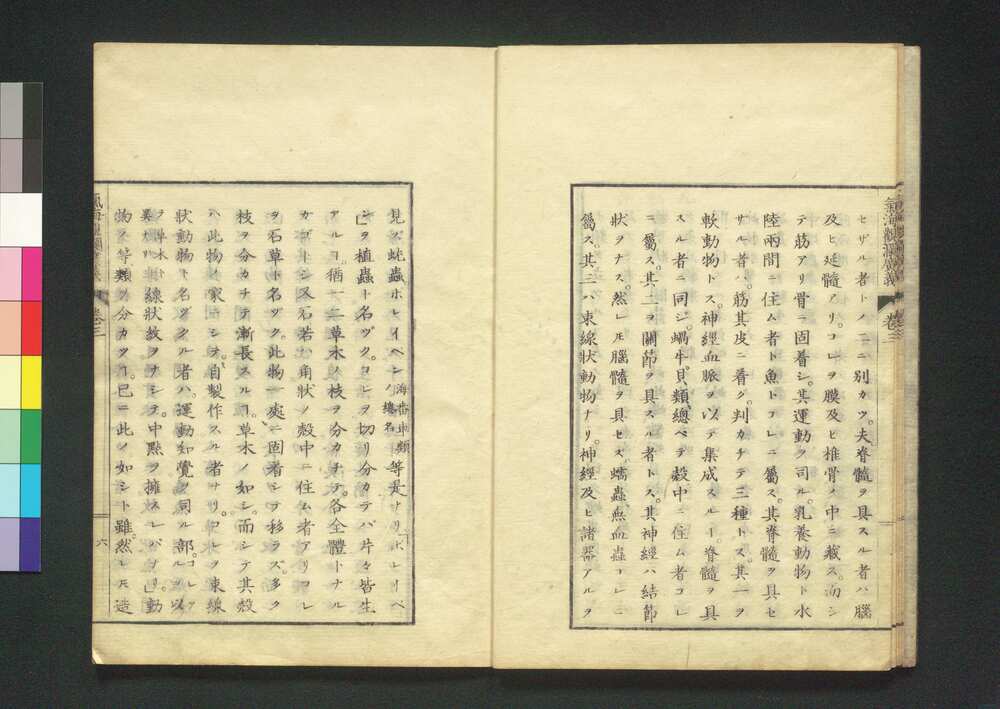 氣海觀瀾廣義 卷三
セザル者トノ二ニ別カツ。夫脊髓ヲ具スル者ハ腦
及ヒ延髓アリ。コレヲ膜及ヒ椎骨ノ中ニ藏ス。而シ
テ筋アリ骨ニ固着シ。其運動ヲ司ル。乳養動物ト水
陸兩間ニ住ム者ト魚トコレニ屬ス。其脊髓ヲ具セ
サル者ハ。筋其皮ニ着ク。判カチテ三種トス。其一ヲ
軟動物トス。神經血脈ヲ以テ集成スルヿ。脊髓ヲ具
スル者ニ同シ。蝸牛。貝類。總ベテ殼中ニ住ム者コレ
ニ屬ス。其二ヲ關節ヲ具スル者トス。其神經ハ結節
狀ヲナス。然レ𪜈腦髓ヲ具セズ。蠕蟲無血蟲コレニ
屬ス。其三ハ束線狀動物ナリ。神經及ヒ諸器アルヲ
見ズ。蛇蟲。ホレイペン海番車類ノ總名等是ナリ。
ヲ植蟲ト名ヅク。コレヲ切リ分カテバ片々皆生
アルヿ。猶一二草木ノ枝ヲ分カチテ。各全體トナル
ガゴトシ。又石若クハ角狀ノ殼中ニ住ム者アリ。コレ
ヲ石草ト名ヅク。此物一處ニ固着シテ移ラズ。多ク
枝ヲ分カチテ漸長スルヿ。草木ノ如シ。而シテ其殼
ハ此物ノ家ニシテ。自製作スル者ナリ。コレヲ束線
狀動物ト名ヅクル者ハ。運動知覺ヲ司ル部。
線狀敎ヲナシテ。中點ヲ擁スレバナリ。動
物ノ等類ヲ分カツヿ。已ニ此ノ如シト雖。然レ𪜈造
卷三
六